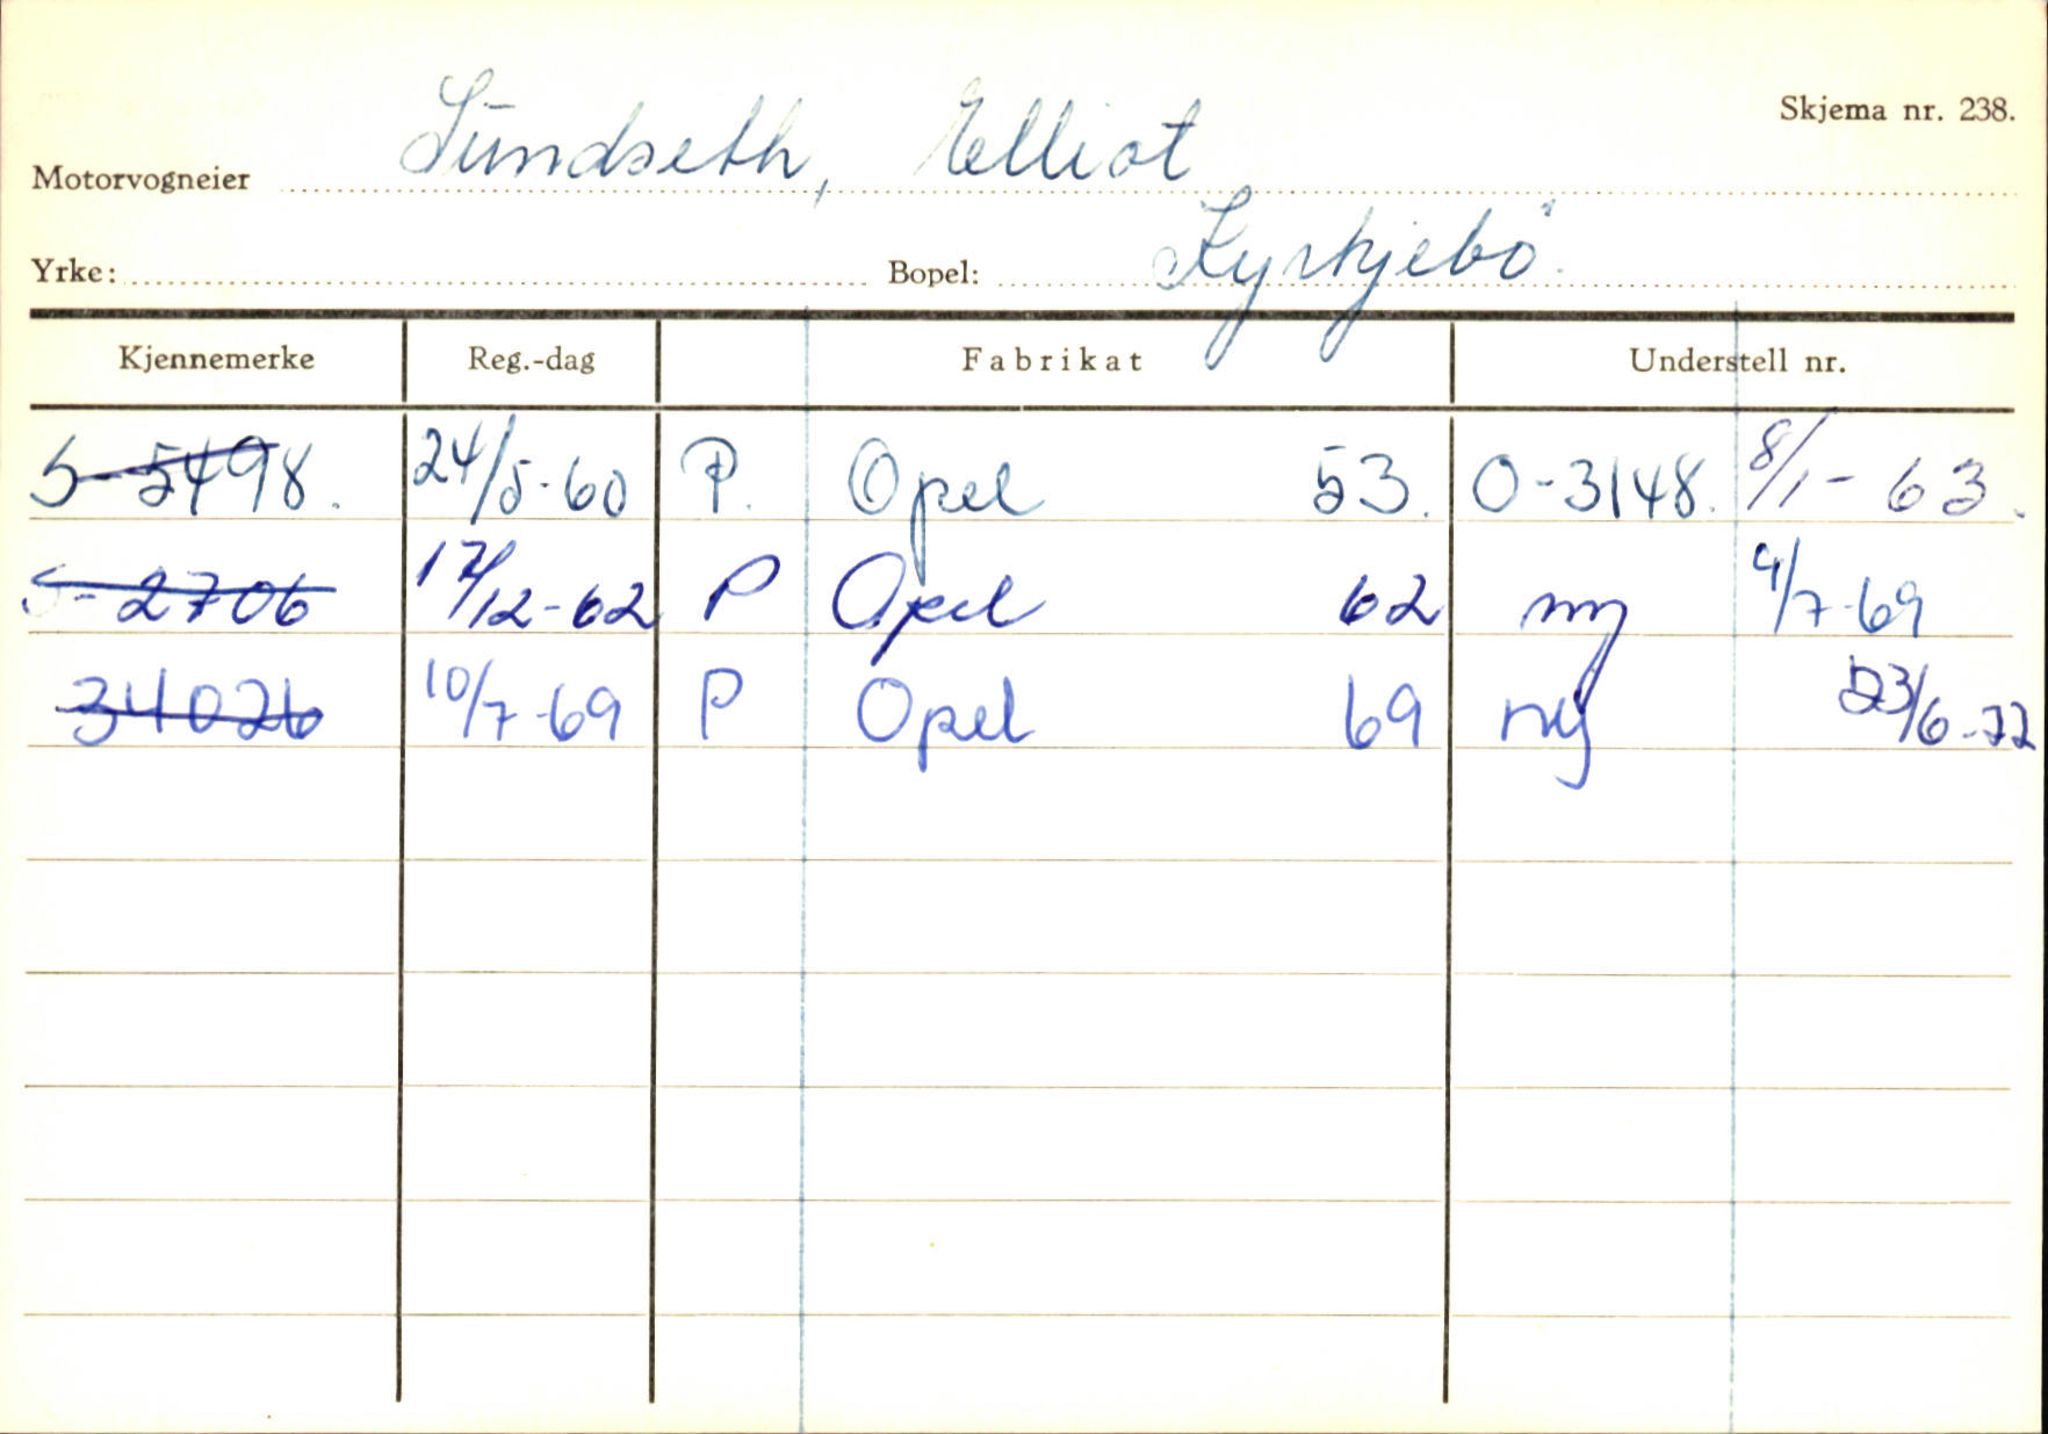 Skjema nr. 238.
Motorvogneier Sundseth, Elliot
Yrke: Bopel: Kyrkjebö
Kjennemerke Reg.-dag Fabrikat Understell nr.
S-5498. 24/5-60 P. Opel 53. O-3148. 8/1-63.
S-2706 17/12-62 P Opel 62 ny 4/7-69
34026 10/7-69 P Opel 69 ny 23/6-72